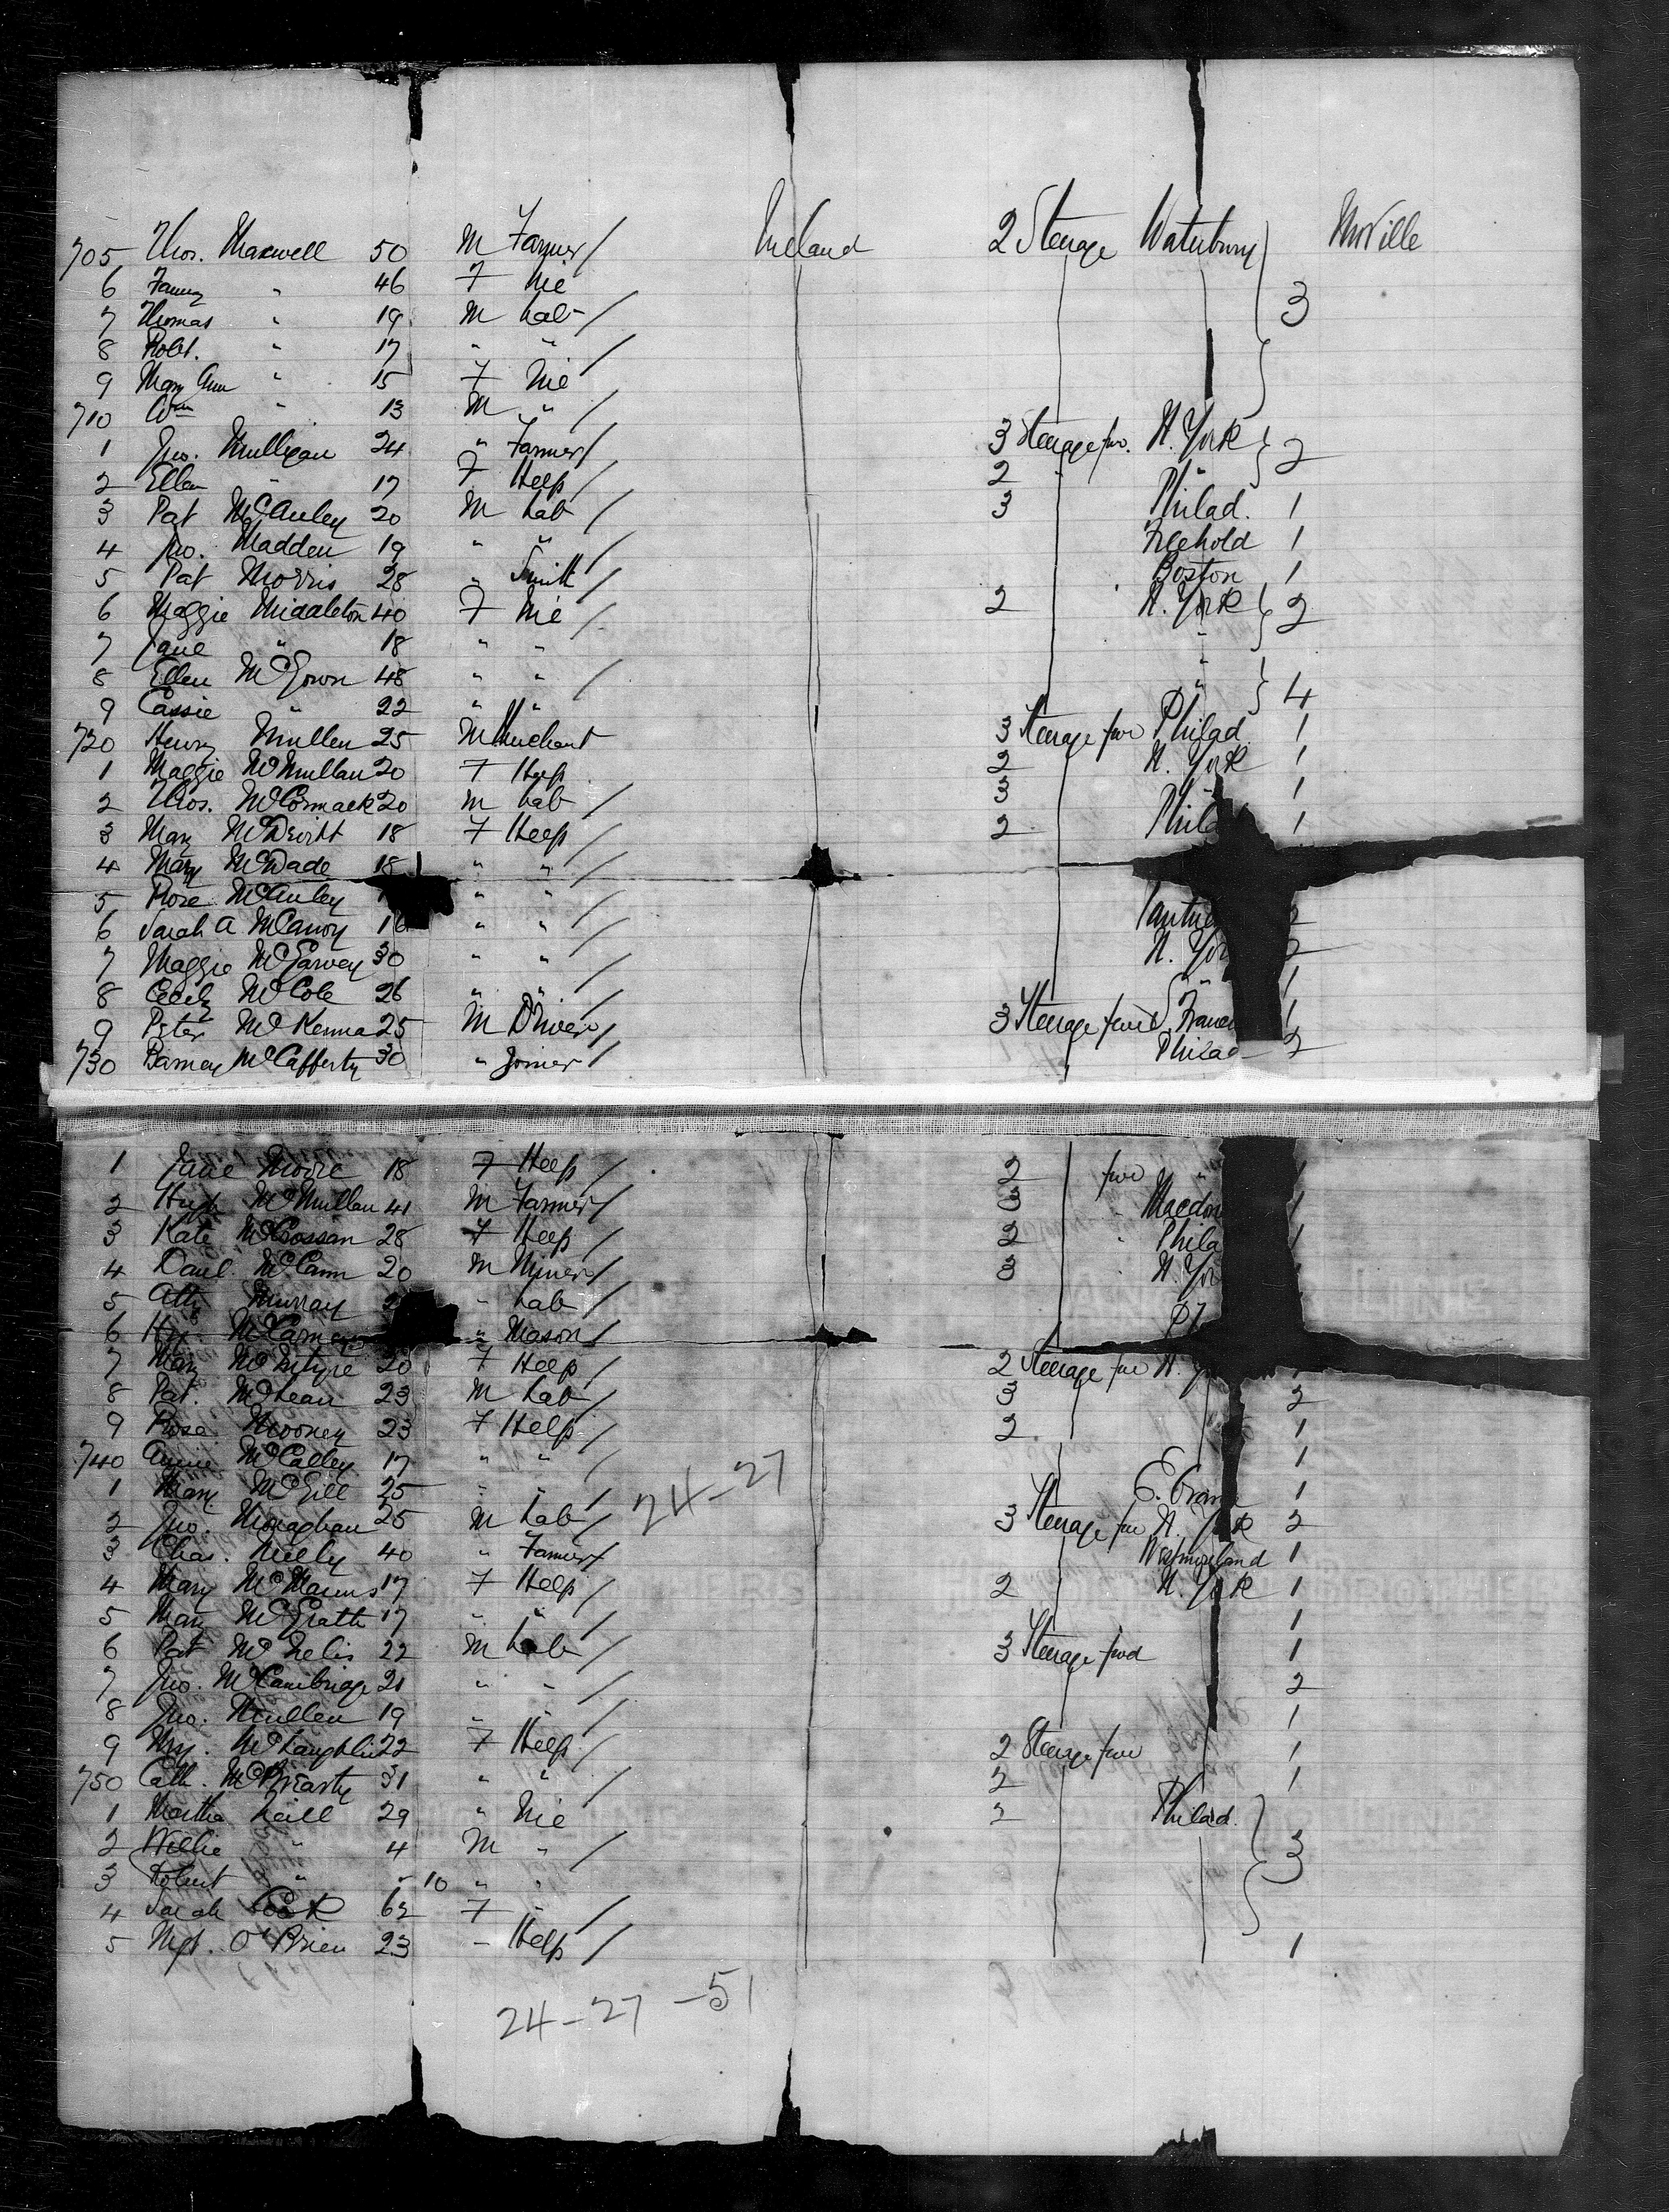 705 Thos. Maxwell 50 M Farmer / Ireland 2 Steerage Waterbury Moville
6 Fanny " 46 F Nie
7 Thomas " 19 M Lab / 3
8 Robt. " 17 " " /
9 Mary Ann " 15 F Nie
710 Wm " 13 M " /
1 Jno. Mulligan 24 " Farmer / 3 Steerage fw. N. York 2
2 Ellen " 17 F Help / 2 "
3 Pat McAuley 20 M Lab / 3 Philad. 1
4 Jno. Madden 19 " " / Freehold 1
5 Pat Morris 28 " Smith / Boston 1
6 Maggie Middleton 40 F Nie / 2 N. York 2
7 Jane " 18 " " "
8 Ellen McGown 48 " " / " 4
9 Cassie " 22 " "
720 Henry Mullen 25 M Merchant 3 Steerage fwr Philad. 1
1 Maggie McMullan 20 F Help 2 N. York 1
2 Thos. McCormack 20 M Lab / 3 " 1
3 Mary McDevitt 18 F Help / 2 Phila 1
4 Mary McDade 18 " " /
5 Rose McAuley " " /
6 Sarah A McCanoy 16 " " / 2
7 Maggie McGarvey 30 " " / N. Yor 2
8 Cecily McCole 26 " " / " 1
9 Peter McKenna 25 M Driver / 3 Steerage fwd 1
730 Barney McCafferty 30 " Joiner / Philad 2
1 Jane Moore 18 F Help / 2 fwr " 1
2 Hugh McMullan 41 M Farmer / 3 " Macdon 1
3 Kate McCrossan 28 F Help / 2 " Phila 1
4 Danl. McCann 20 M Miner / 3 " N. Yor
5 Murray 2 " Lab /
6 Hy. " Mason /
7 Mary McIntyre 20 F Help / 2 Steerage fwr N. Y
8 Pat. McLean 23 M Lab / 3 2
9 Rose Mooney 23 F Help / 2 1
740 Annie McCalley 17 " " / 1
1 Mary McGill 25 " " / 24-27 E. Oran 1
2 Jno. Monaghan 25 M Lab / 3 Steerage fwr N. York 2
3 Chas. Neely 40 " Farmer / Westmoreland 1
4 Mary McManus 17 F Help / 2 N. York 1
5 Mary McGrath 17 " " / 1
6 Pat McNelis 22 M Lab / 3 Steerage fwd 1
7 Jno. McCambridge 21 " " / 2
8 Jno. Mullen 19 " " / 1
9 Mry. McLaughlin 22 F Help / 2 Steerage fwr 1
750 Cath. McBrearty 31 " " / 2 1
1 Martha Neill 29 " Nie 2 Philad.
2 Willie " 4 M " / 3
3 Robert " - 10 " "
4 Sarah 62 F " /
5 Mgt. O'Brien 23 " Help / 1
24-27-51